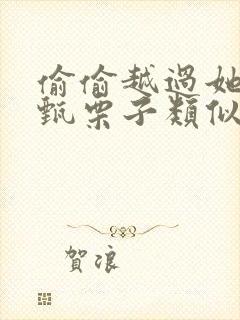 偷偷越過她
甄栗子類似
賀浪